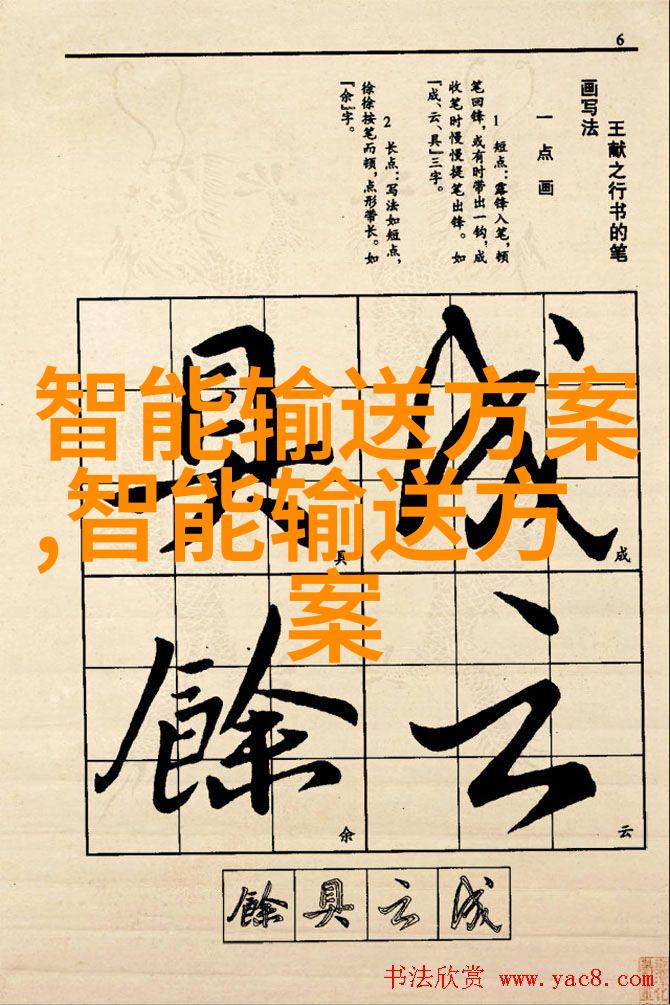 6
王献之行书的笔
画写法
一 点 画
1 短点：露锋入笔，顿
笔回锋，或有时带出一钩，成
收笔时慢慢提笔出锋。如
『成、云、具』三字。
2 长点：写法如短点，
徐徐按笔而顿，点形带长。如
『余』字。
智能输送方案
,智能输送方
案
成
具
云
餘
具
成
云
余
餘 具 云 成
书法欣赏 www.yac8.com